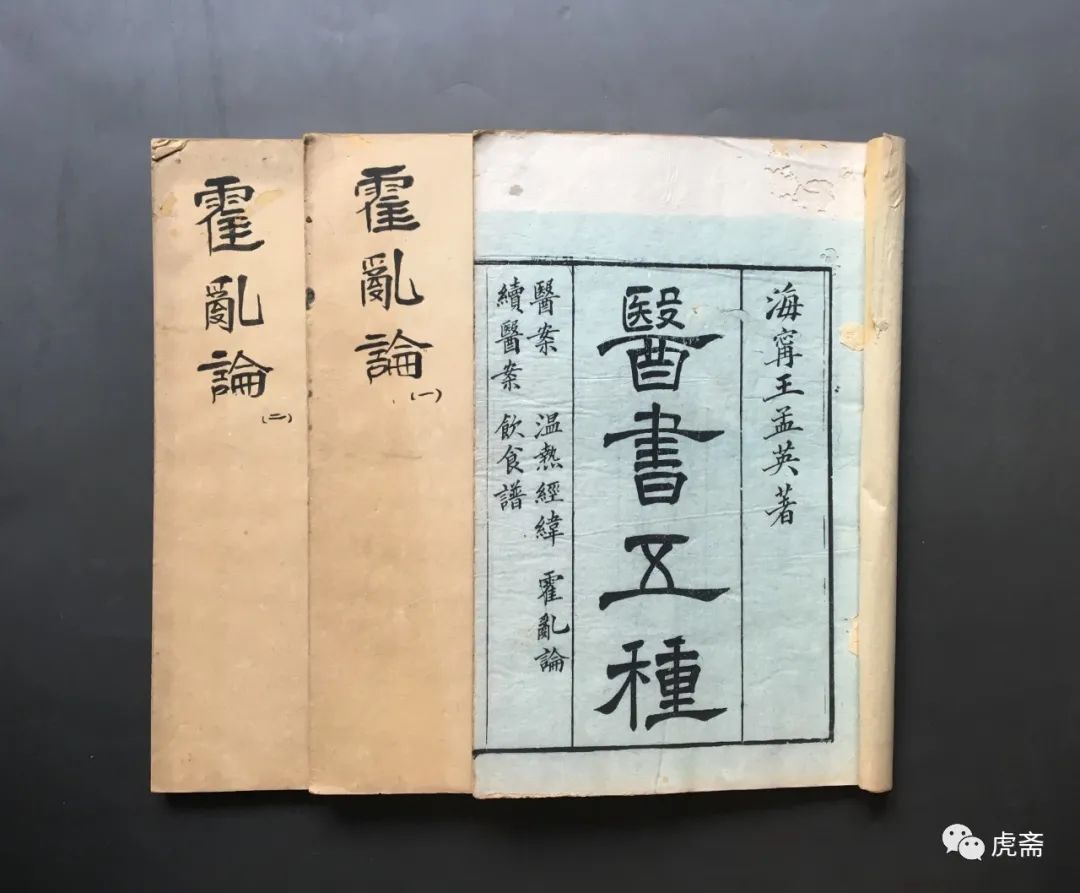 海寧王孟英著
醫書五種
醫案 温熱經緯 霍亂論
續醫案 飲食譜
霍亂論
(一)
霍亂論
(二)
虎斋